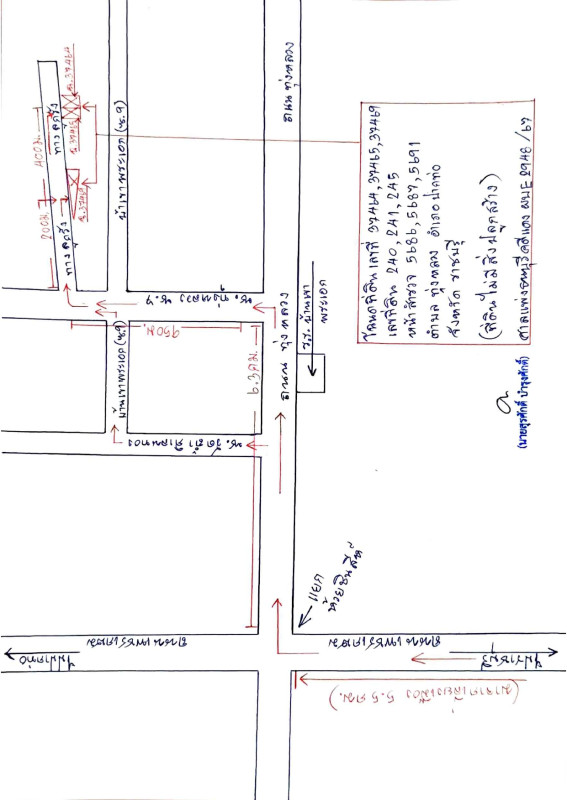 โฉนดที่ดินเลขที่ 37464,37465,37469
เลขที่ดิน 240, 241, 245
หน้าสำรวจ 5686, 5687, 5691
ตำบล ทุ่งหลวง อำเภอ ปากท่อ
จังหวัด ราชบุรี
(ที่ดินไม่มีสิ่งปลูกสร้าง)
ศาลแพ่งธนบุรี คดีแดง ผบE 2948/67
(นายสุรศักดิ์ บำรุงศักดิ์)
ถนน ทุ่งหลวง
ถนน ทุ่งหลวง
ร.ร. บ้านเขา
พระเอก
แยก
ห้วยชินสีห์
ถนนเพชรเกษม
ถนนเพชรเกษม
ไปปากท่อ
ไปราชบุรี
5.5 กม.)
6.3 กม.
950 ม.
200 ม.
400 ม.
ทางลูกรัง
ทางลูกรัง
ฉ.37469
ฉ.37465
ฉ.37464
บ้านเขาพระเอก (ซ.9)
บ้านเขาพระเอก (ซ.9)
ซ. ทุ่งหลวง ซ.7